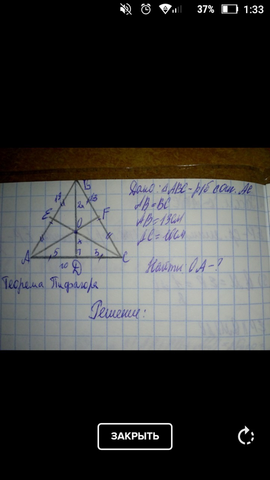 37% 1:33
Дано: ΔABC - р/б с осн. AC
AB = BC
AB = 13см
AC = 10см
Найти: OA - ?
B
13
E
F
O
A
5
D
C
10
Теорема Пифагора
Решение:
ЗАКРЫТЬ